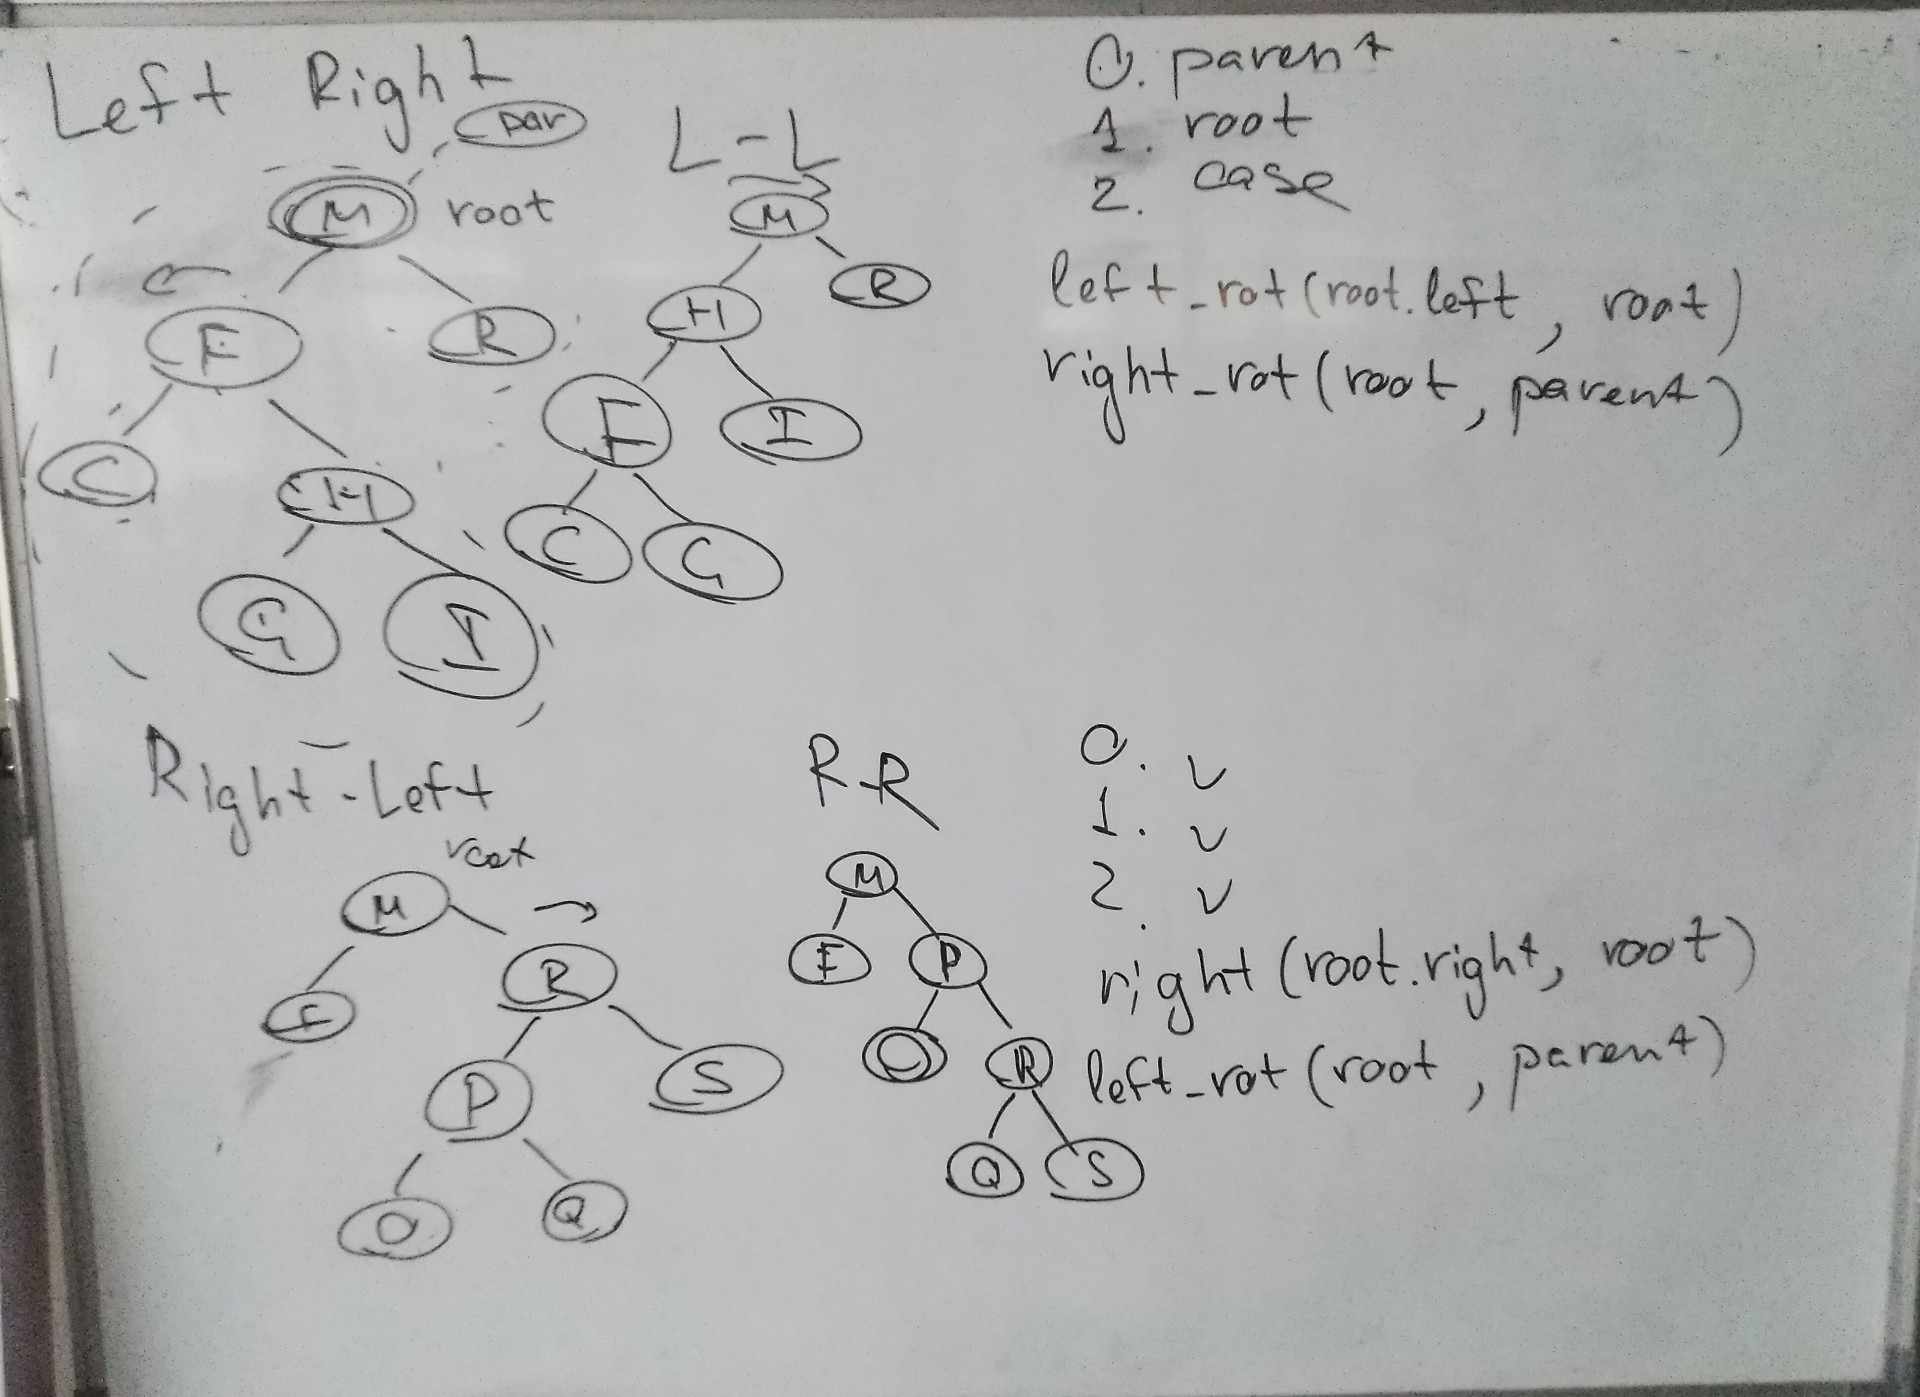 Left Right
par
M root
F R
C H
G I
L-L
M
H R
F I
C G
0. parent
1. root
2. case
left_rot(root.left, root)
right_rot(root, parent)
Right-Left
root
M
F R
P S
O Q
R-R
M
F P
O R
Q S
0. v
1. v
2. v
right(root.right, root)
left_rot(root, parent)